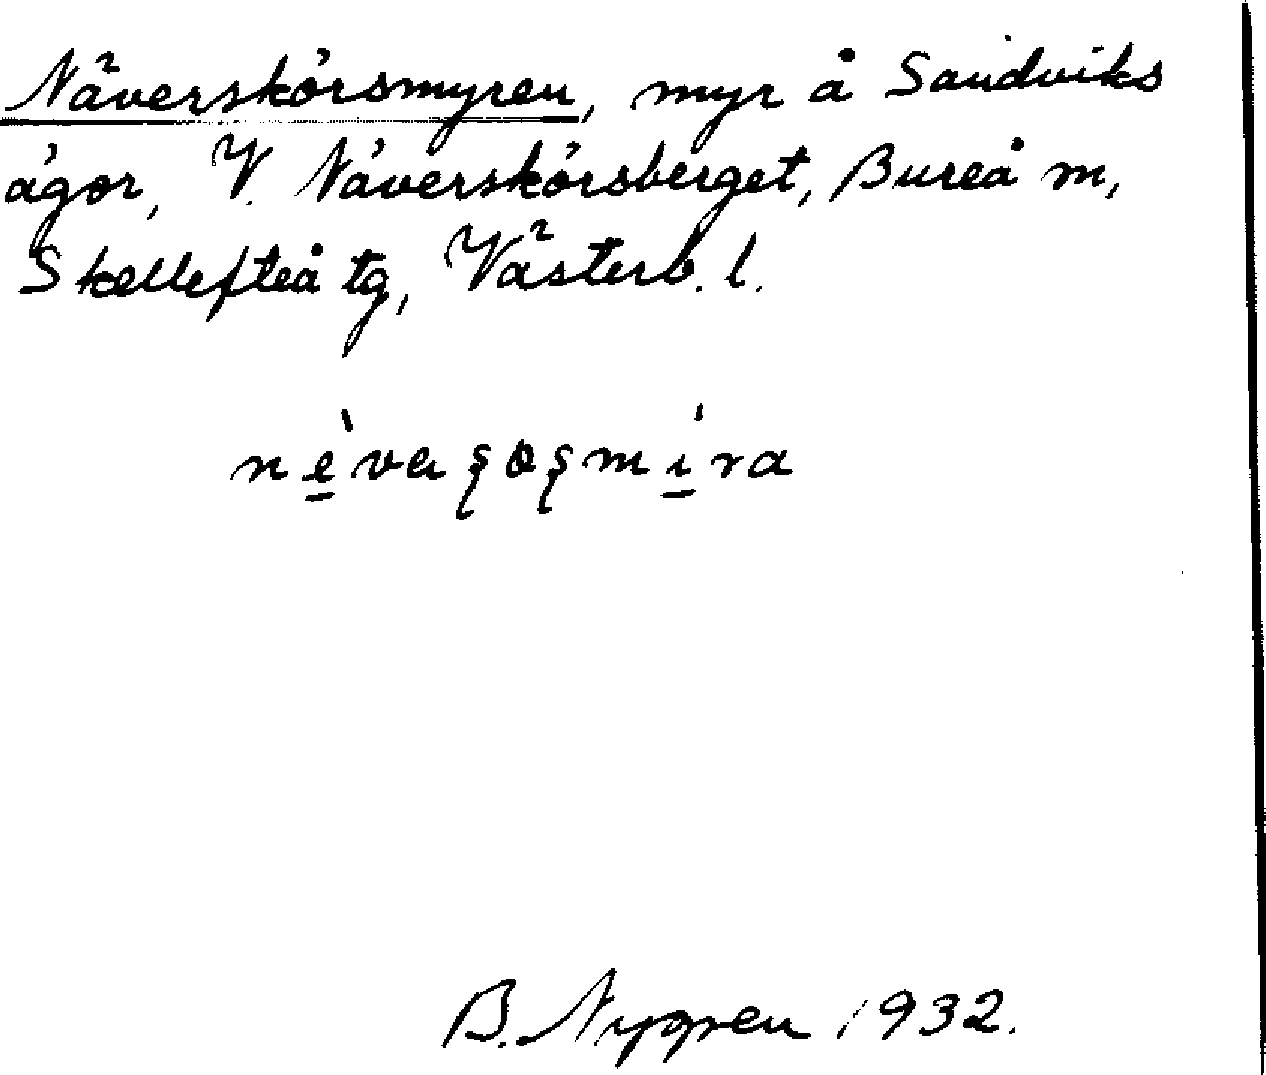 Näverskörsmyren, myr å Sandviks
ägor, V. Näverskörsberget, Bureå m,
Skellefteå tg, Västerb. l.
B. Nygren 1932.